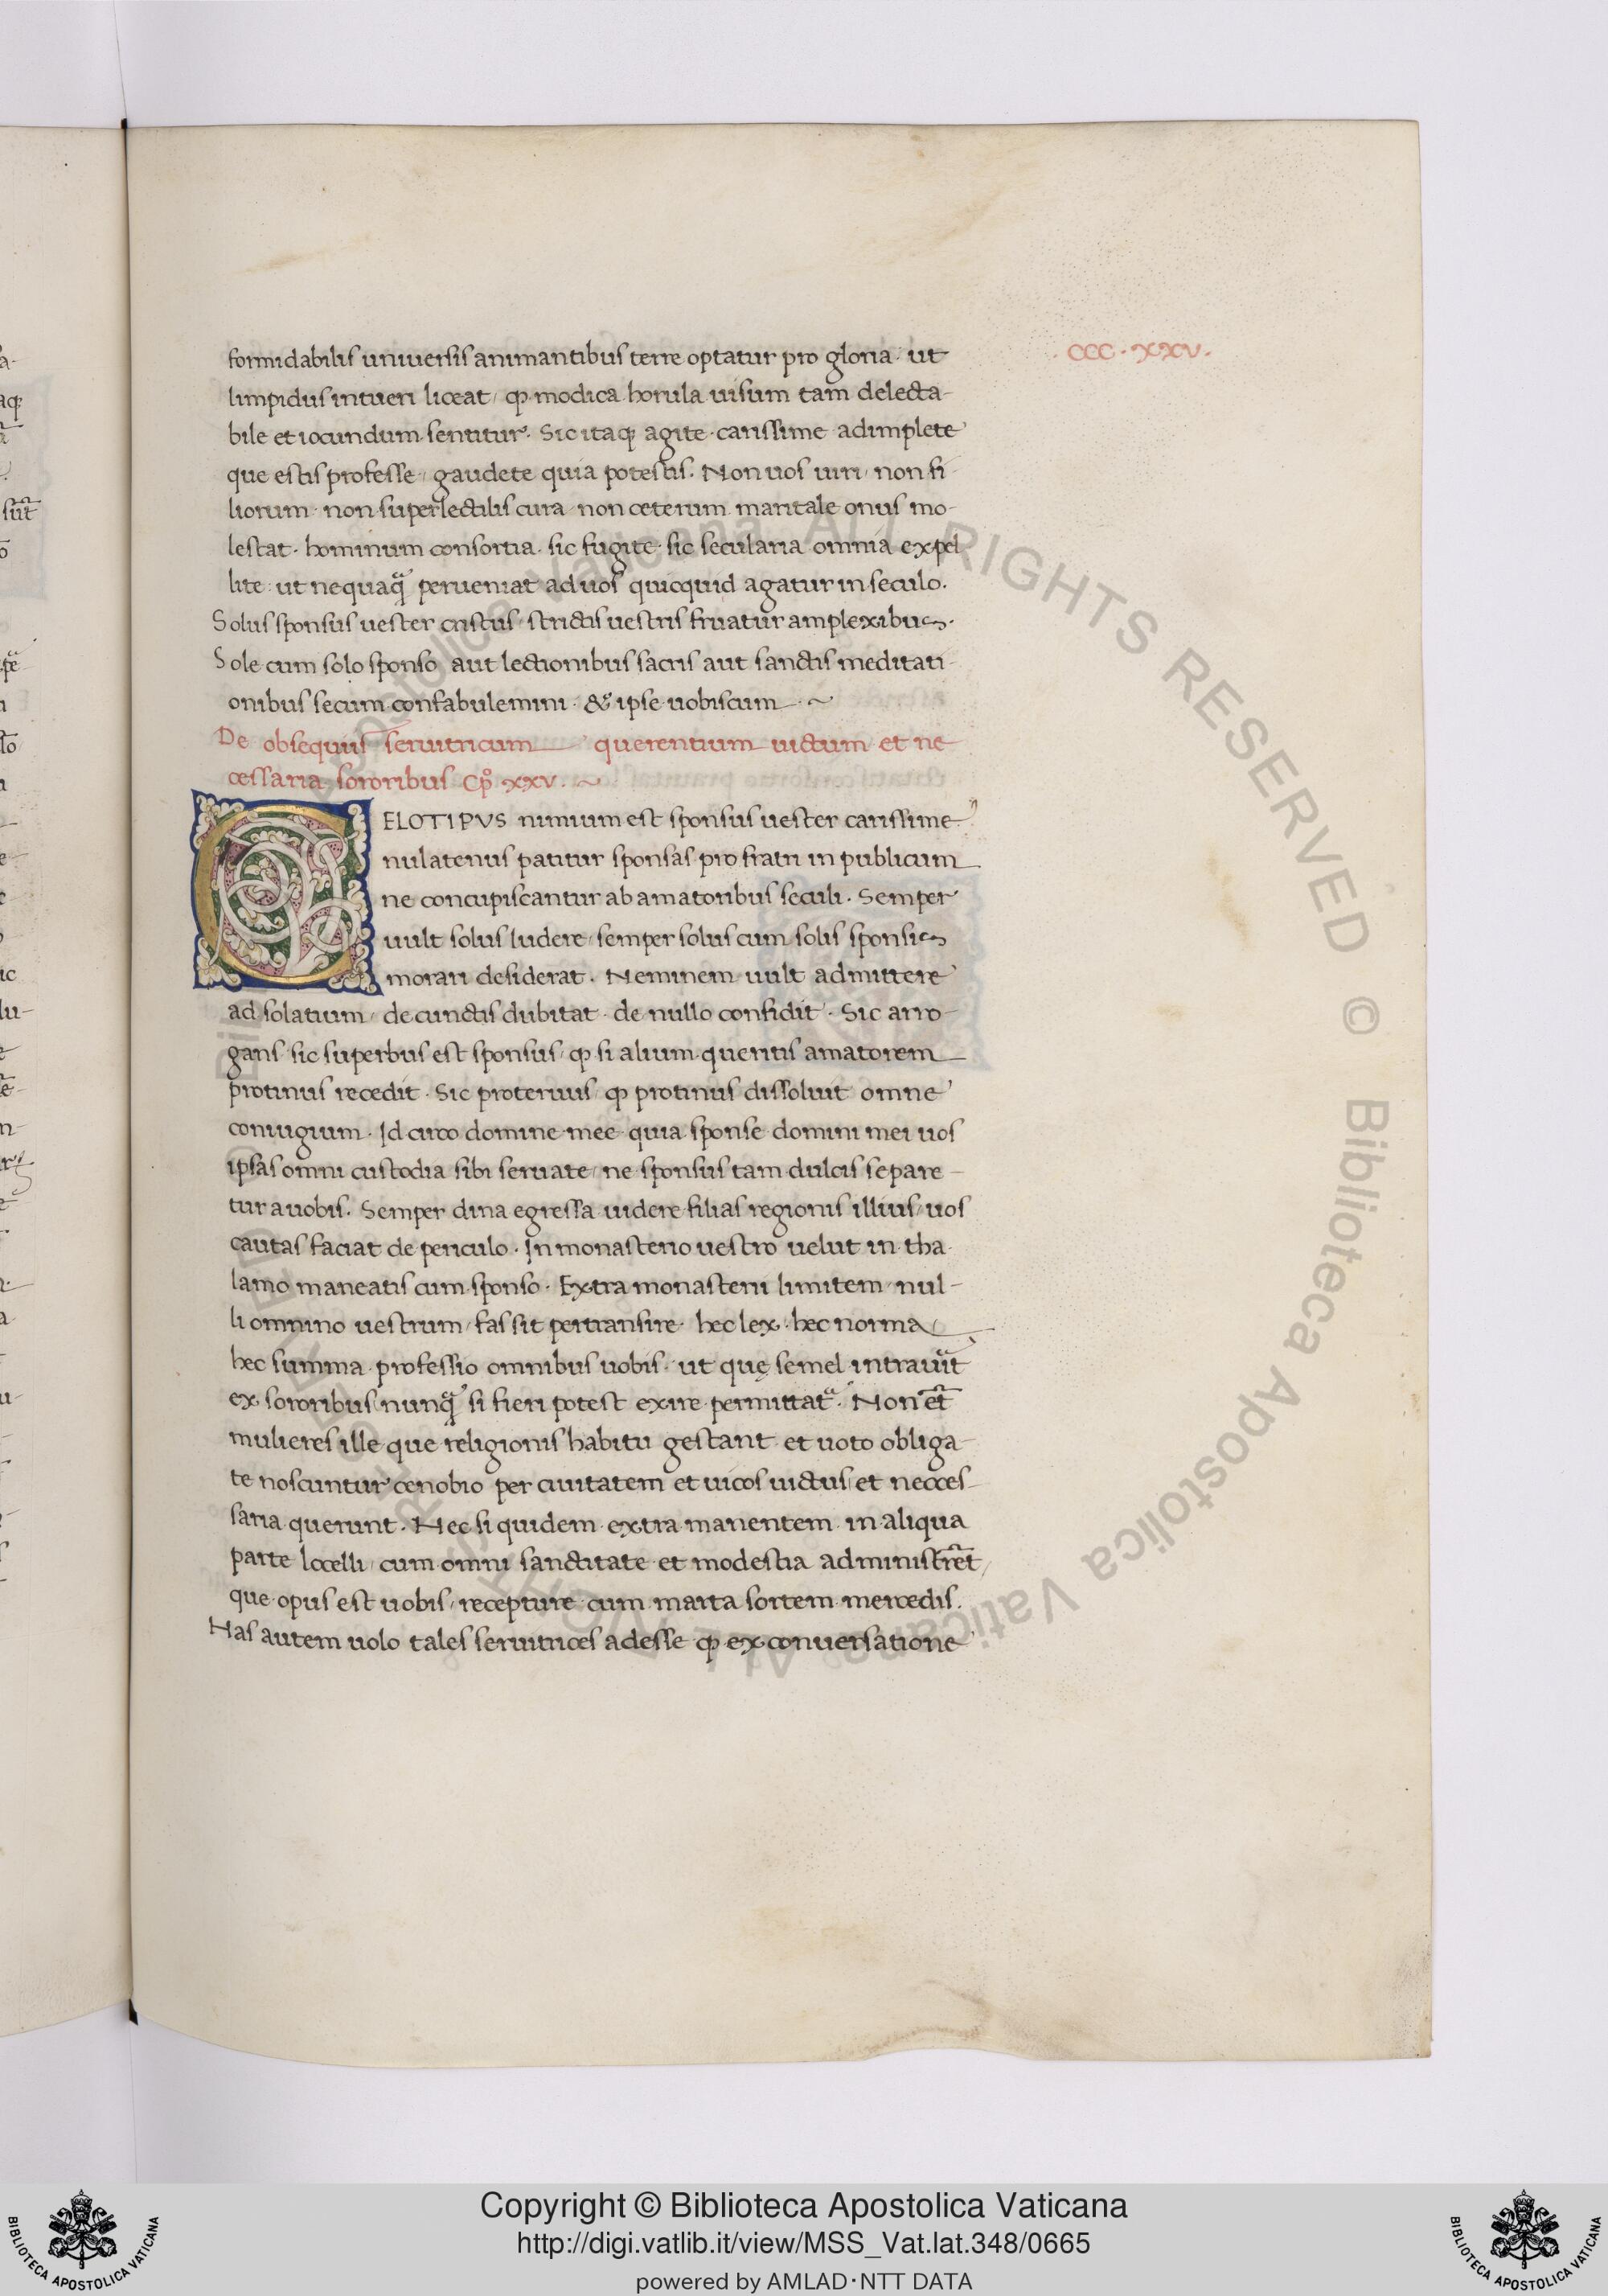 CCC·XXV·
formidabilis universis animantibus terre optatur pro gloria· ut
limpidus intueri liceat, ꝙ modica horula uisum tam delecta-
bile et iocundum sentitur. Sic itaqꝫ agite carissime adimplete
que estis professe, gaudete quia potestis. Non uos uiri, non fi-
liorum non superlectilis cura non ceterum maritale onus mo-
lestat. hominum consortia. sic fugite sic secularia omnia expel
lite: ut nequaq̃ perueniat ad uos quicquid agatur in seculo.
Solus sponsus uester cristus, strictis uestris fruatur amplexibus.
Sole cum solo sponso, aut lectionibus sacris aut sanctis meditati-
onibus secum confabulemini· & ipse uobiscum ·~
De obsequiis seruitricum querentium uictum et ne
cessaria sororibus Cp̊ xxv. ~
CELOTIPVS nimium est sponsus uester carissime.
nulatenus patitur sponsas pro fratri in publicum
ne concupiscantur ab amatoribus seculi. Semper
uult solus ludere, semper solus cum solis sponsis
morari desiderat. Neminem uult admittere
ad solatium, de cunctis dubitat. de nullo confidit. Sic arro-
gans sic superbus est sponsus, ꝙ si alium queritis amatorem
protinus recedit. Sic proteruus ꝙ protinus dissoluit omne
coniugium. Id circo domine mee quia sponse domini mei uos
ipsas omni custodia sibi seruate, ne sponsus tam dulcis separe-
tur a uobis. Semper dina egressa uidere filias regionis illius, uos
cautas faciat de periculo. In monasterio uestro uelut in tha
lamo maneatis cum sponso. Extra monasterii limitem nul-
li omnino uestrum, fas sit pertransire hec lex, hec norma
hec summa professio omnibus uobis, ut quę semel intrauit̃
ex sororibus nunq̃ si fieri potest exire permittatᵃ. Non et̃
mulieres ille que religionis habitu gestant et uoto obliga-
te noscuntur cenobio per ciuitatem et uicos uictus et necces-
saria querunt. Nec si quidem extra manentem in aliqua
parte locelli, cum omni sanctitate et modestia administret̃,
que opus est uobis, recepture cum marta sortem mercedis.
Has autem uolo tales seruitrices adesse ꝙ ex conuersatione
Copyright © Biblioteca Apostolica Vaticana
http://digi.vatlib.it/view/MSS_Vat.lat.348/0665
powered by AMLAD·NTT DATA